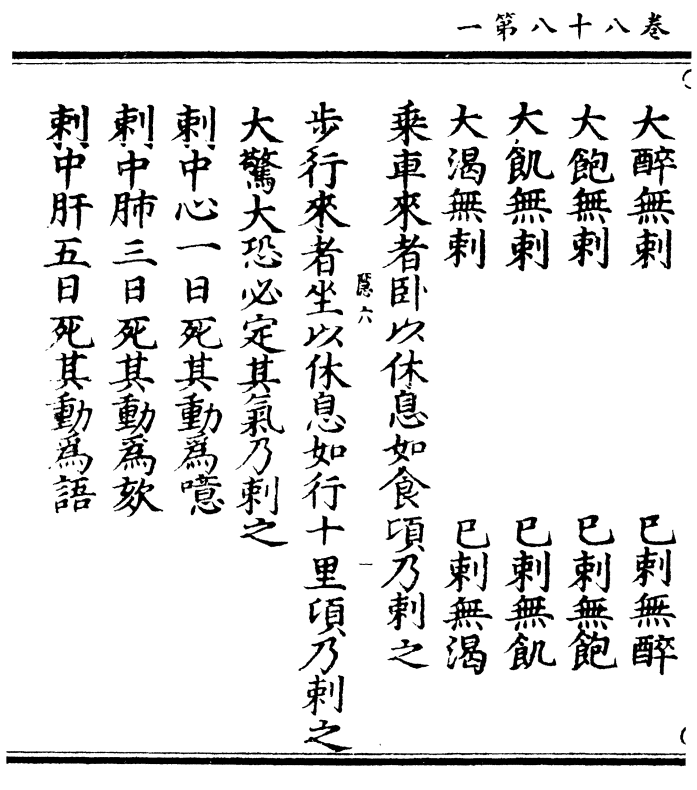 一第八十八卷
大醉無刺　已刺無醉
大飽無刺　已刺無飽
大飢無刺　已刺無飢
大渴無刺　已刺無渴
乘車來者卧以休息如食頃乃刺之
隱六
一
步行來者坐以休息如行十里頃乃刺之
大驚大恐必定其氣乃刺之
刺中心一日死其動爲噫
刺中肺三日死其動爲欬
刺中肝五日死其動爲語